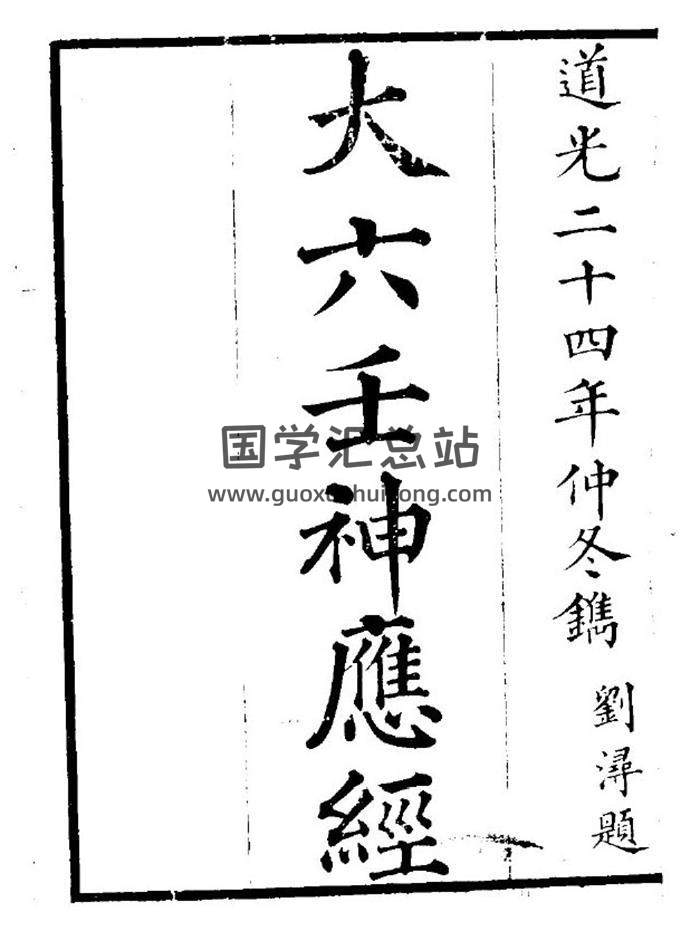 道光二十四年仲冬鐫
劉潯題
大六壬神應經
国学汇总站
www.guoxuehuizong.com